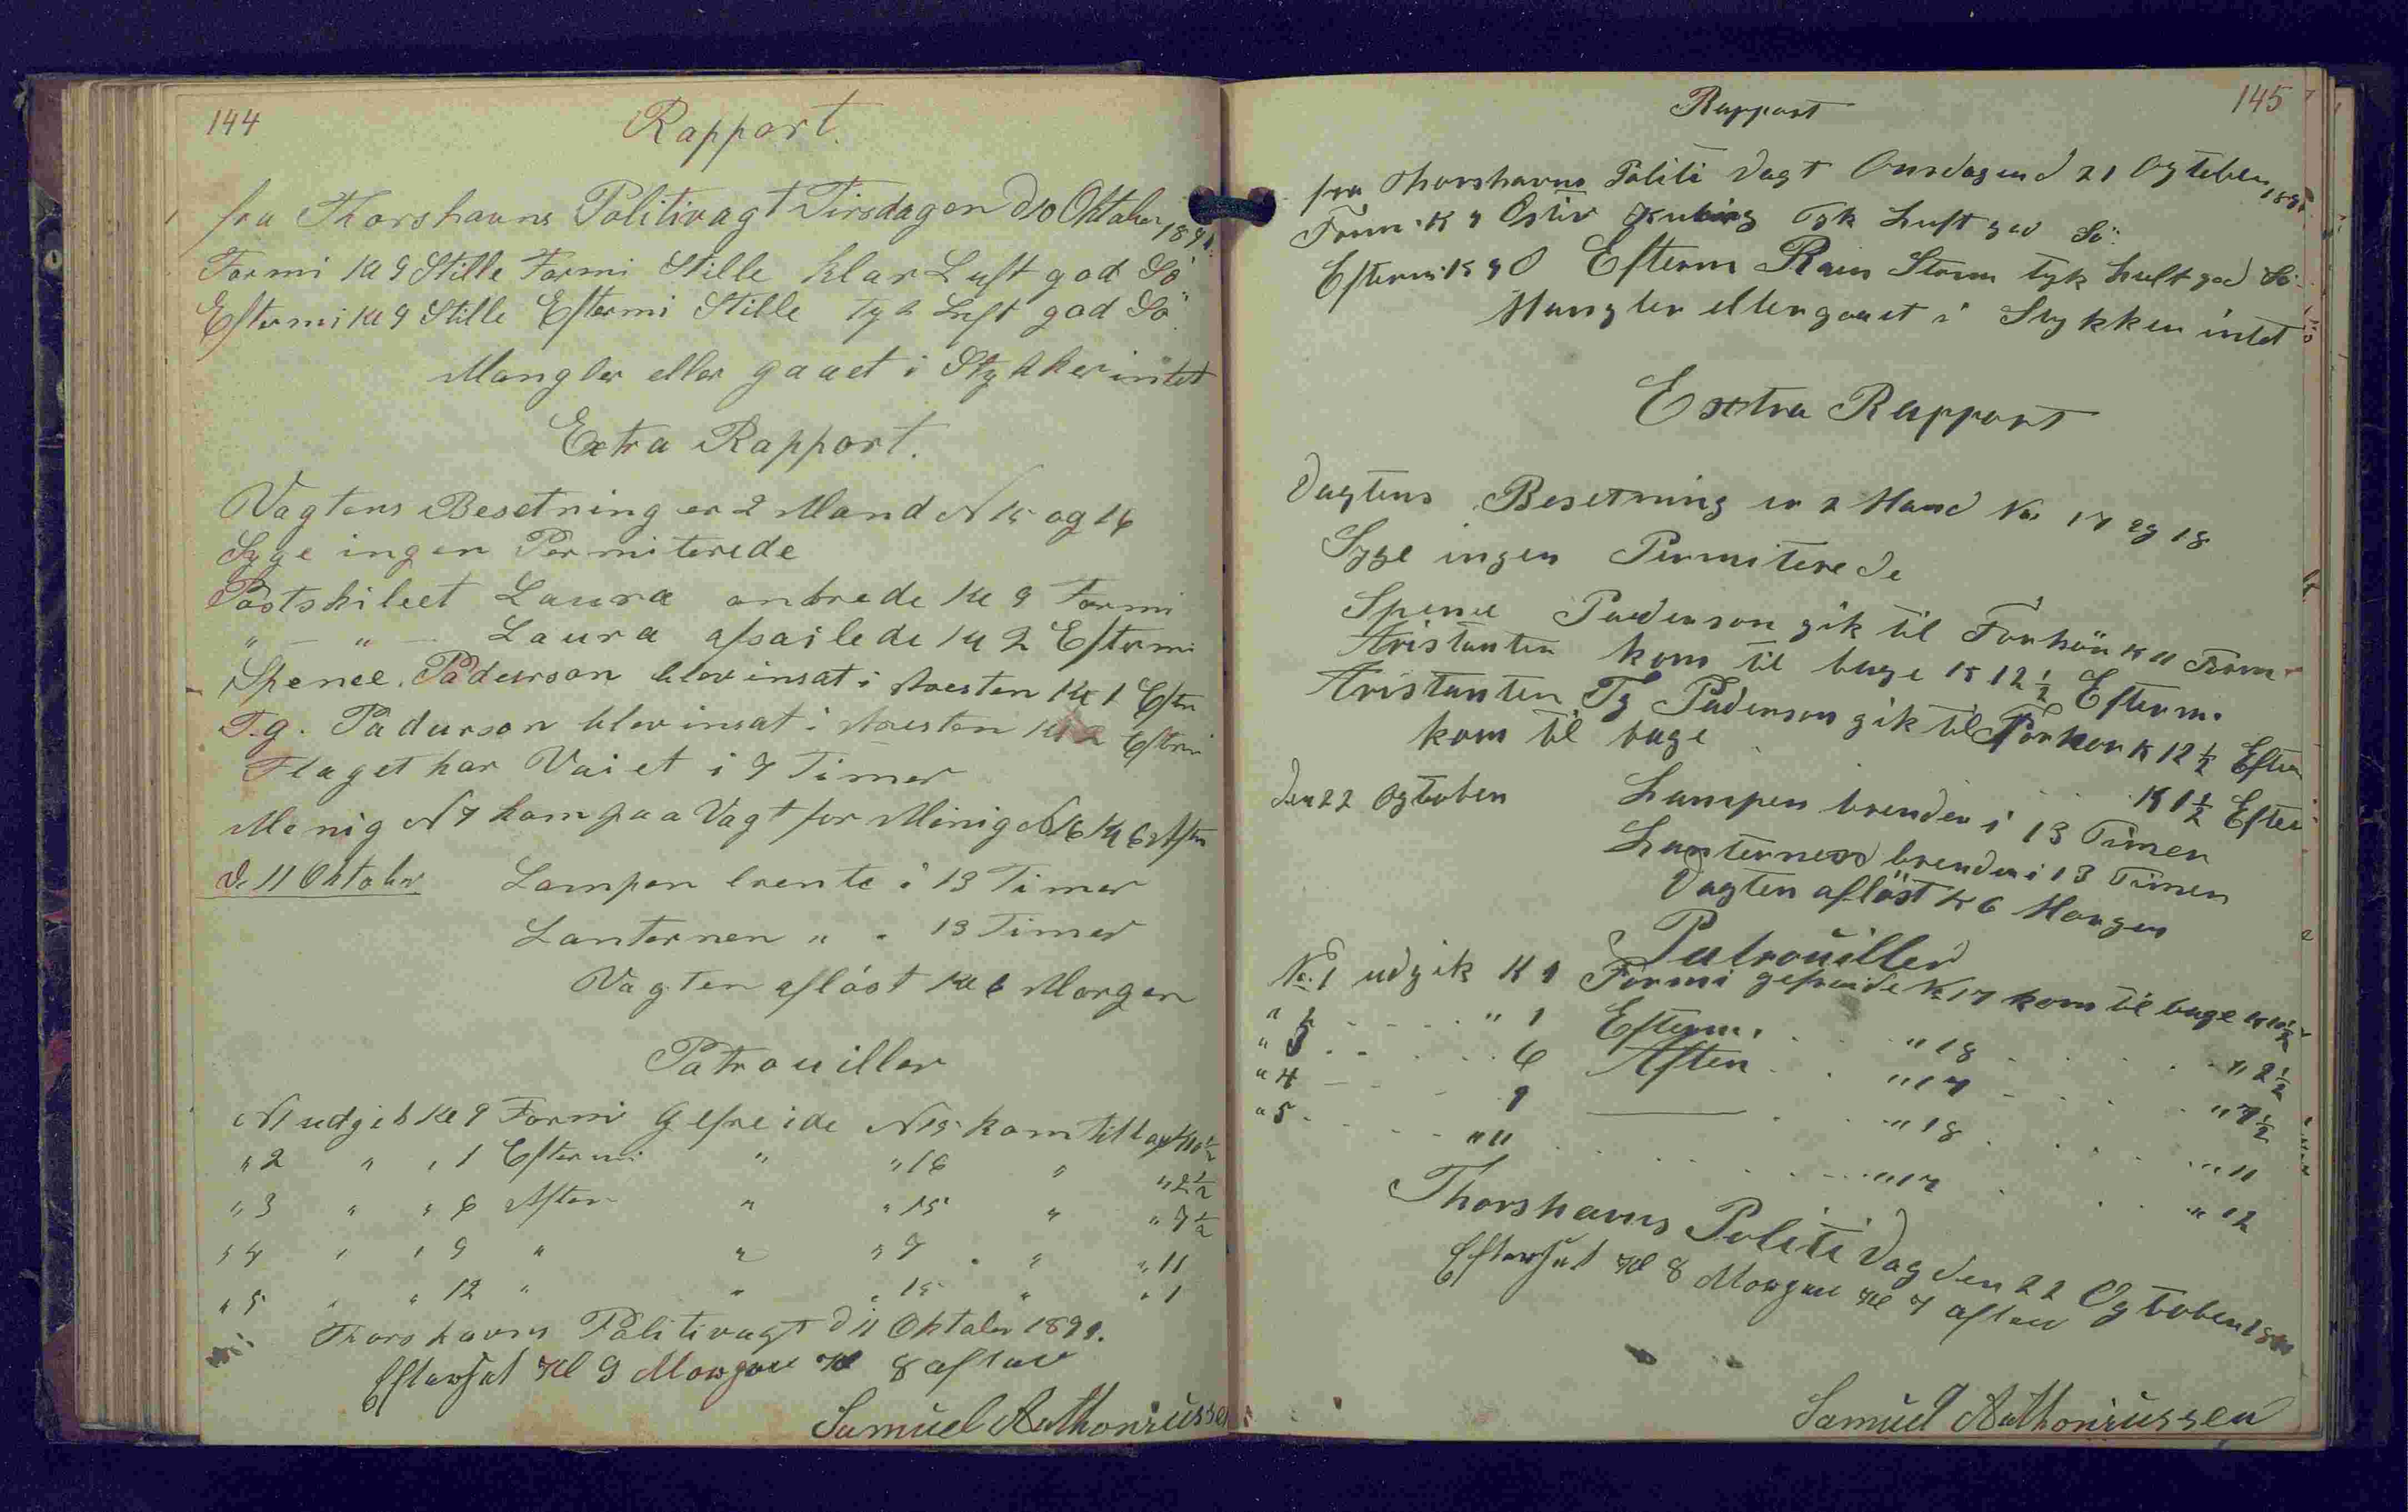 144
Rapport.
fra Thorshavns Politivagt Tirsdagen D 20 Oktober 1891.
Formi Kl 9 Stille Formi Stille Klar Luft god Sö
Eftermi Kl 9 Stille Eftermi Stille Tyk Luft god Sö
Mangler eller gaaet i Stykker intet
Extra Rapport.
Vagtens Besetning er 2 Mand N 15 og 16
Syge ingen Permiterede
Postskibet Laura ankrede Kl 9 Formi
" — " — Laura afsailede Kl 2 Eftermi
Spence Padurson blev insat i Aresten Kl 1 Efter
T.g. Padurson blev insat i Aresten Kl 2 Eftermi
Flaget har Vaiet i 7 Timer
Menig N 7 kom paa Vagt for Minig N 16 Kl 6 Aften
D. 11 Oktober Lampen brente i 13 Timer
Lanternen " " 13 Timer
Vagten aflöst Kl 6 Morgen
Patrouiller
N1 udgik Kl 9 Formi Gefreide N 15 kom tilbage Kl 10½
" 2 " " 1 Eftermi " " 16 " " 2½
" 3 " " 6 Aften " " 15 " " 7½
" 4 " " 9 " " " 7 " " 11
" 5 " " 12 " " " 15 " " 1
Thorshavns Politivagt D 11 Oktober 1891.
Efterset Kl 9 Morgen Kl 8 aften
Samuel Anthoniussen
145
Rapport
fra Thorshavns Politi Vagt Onsdagend 21 Ogtober 1891
Form. K 9 Ostiv Kuling Tyk Luft god Sö.
Efterm K 9 O Efterm Rain Storm tyk Luft god Sö.
Mangler ellergaaet i Stykker intet
Extra Rapport
Vagtens Besetning er 2 Mand No 17 og 18
Syge ingen Permiterede
Spence Paderson gik til Forhör K 11 Form
Aristanten kom til bage K 12½ Efterm.
Aristanten Tg Paderson gik til Forhor K 12½ Efter
kom til bage K 1½ Efter
Den 22 Ogtober Lampen brender i 13 Timer
Lanternen brender i 13 Timer
Vagten aflöst K 6 Morgen
Patrouiller
No. 1 udgik K 9 Formi gefreide No 17 kom til bage K 10½
" 2 - - - " 1 Efterm. . . " 18 . . . " 2½
" 3 . . . . 6 Aften . . " 17 . . . " 7½
" 4 — - - 9 — . . " 18 . . . " 11
" 5 . . . " 11 . . . . " 17 . . . " 12
Thorshavns Politi Vag den 22 Ogtober 1891
Efterset Kl 8 Morgen Kl 7 aften
Samuel Anthoniussen